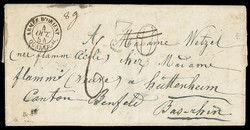 ARMÉE D'ORIENT
4
OCT.
A Madame Wetzel
(née flamm Cécile) chez Madame
flamm (veuve) à huttenheim
Canton Benfeld
Bas-rhin